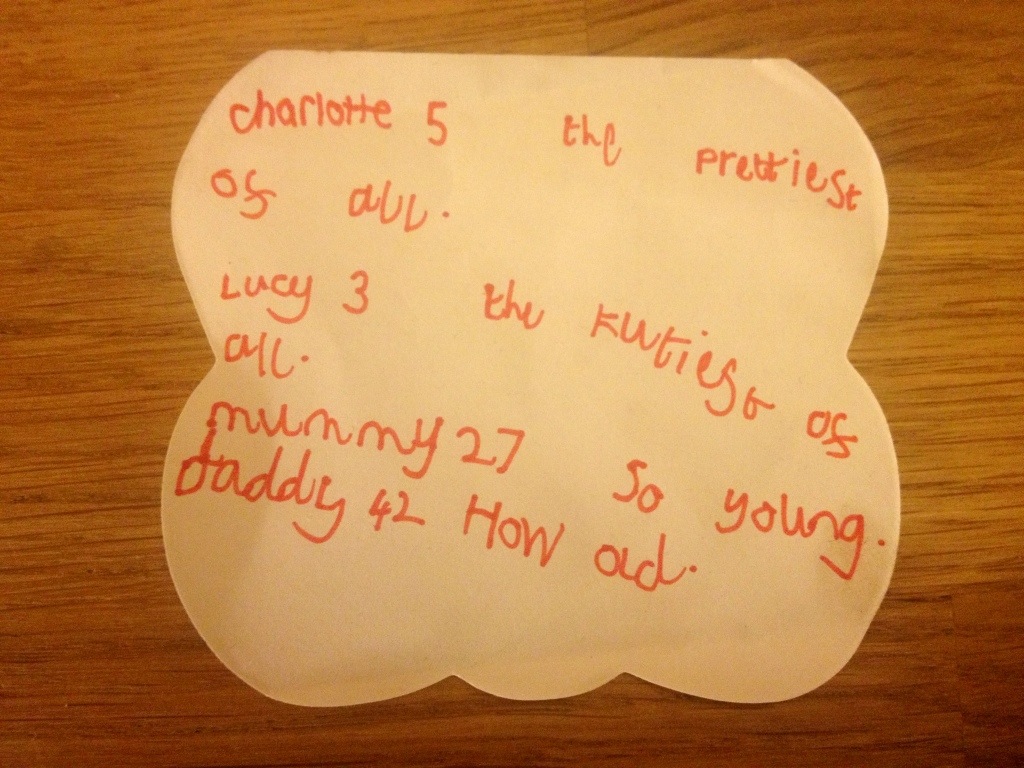 charlotte 5 the prettiest
of all.
Lucy 3 the kutiest of
all.
mummy 27 so young.
daddy 42 How old.